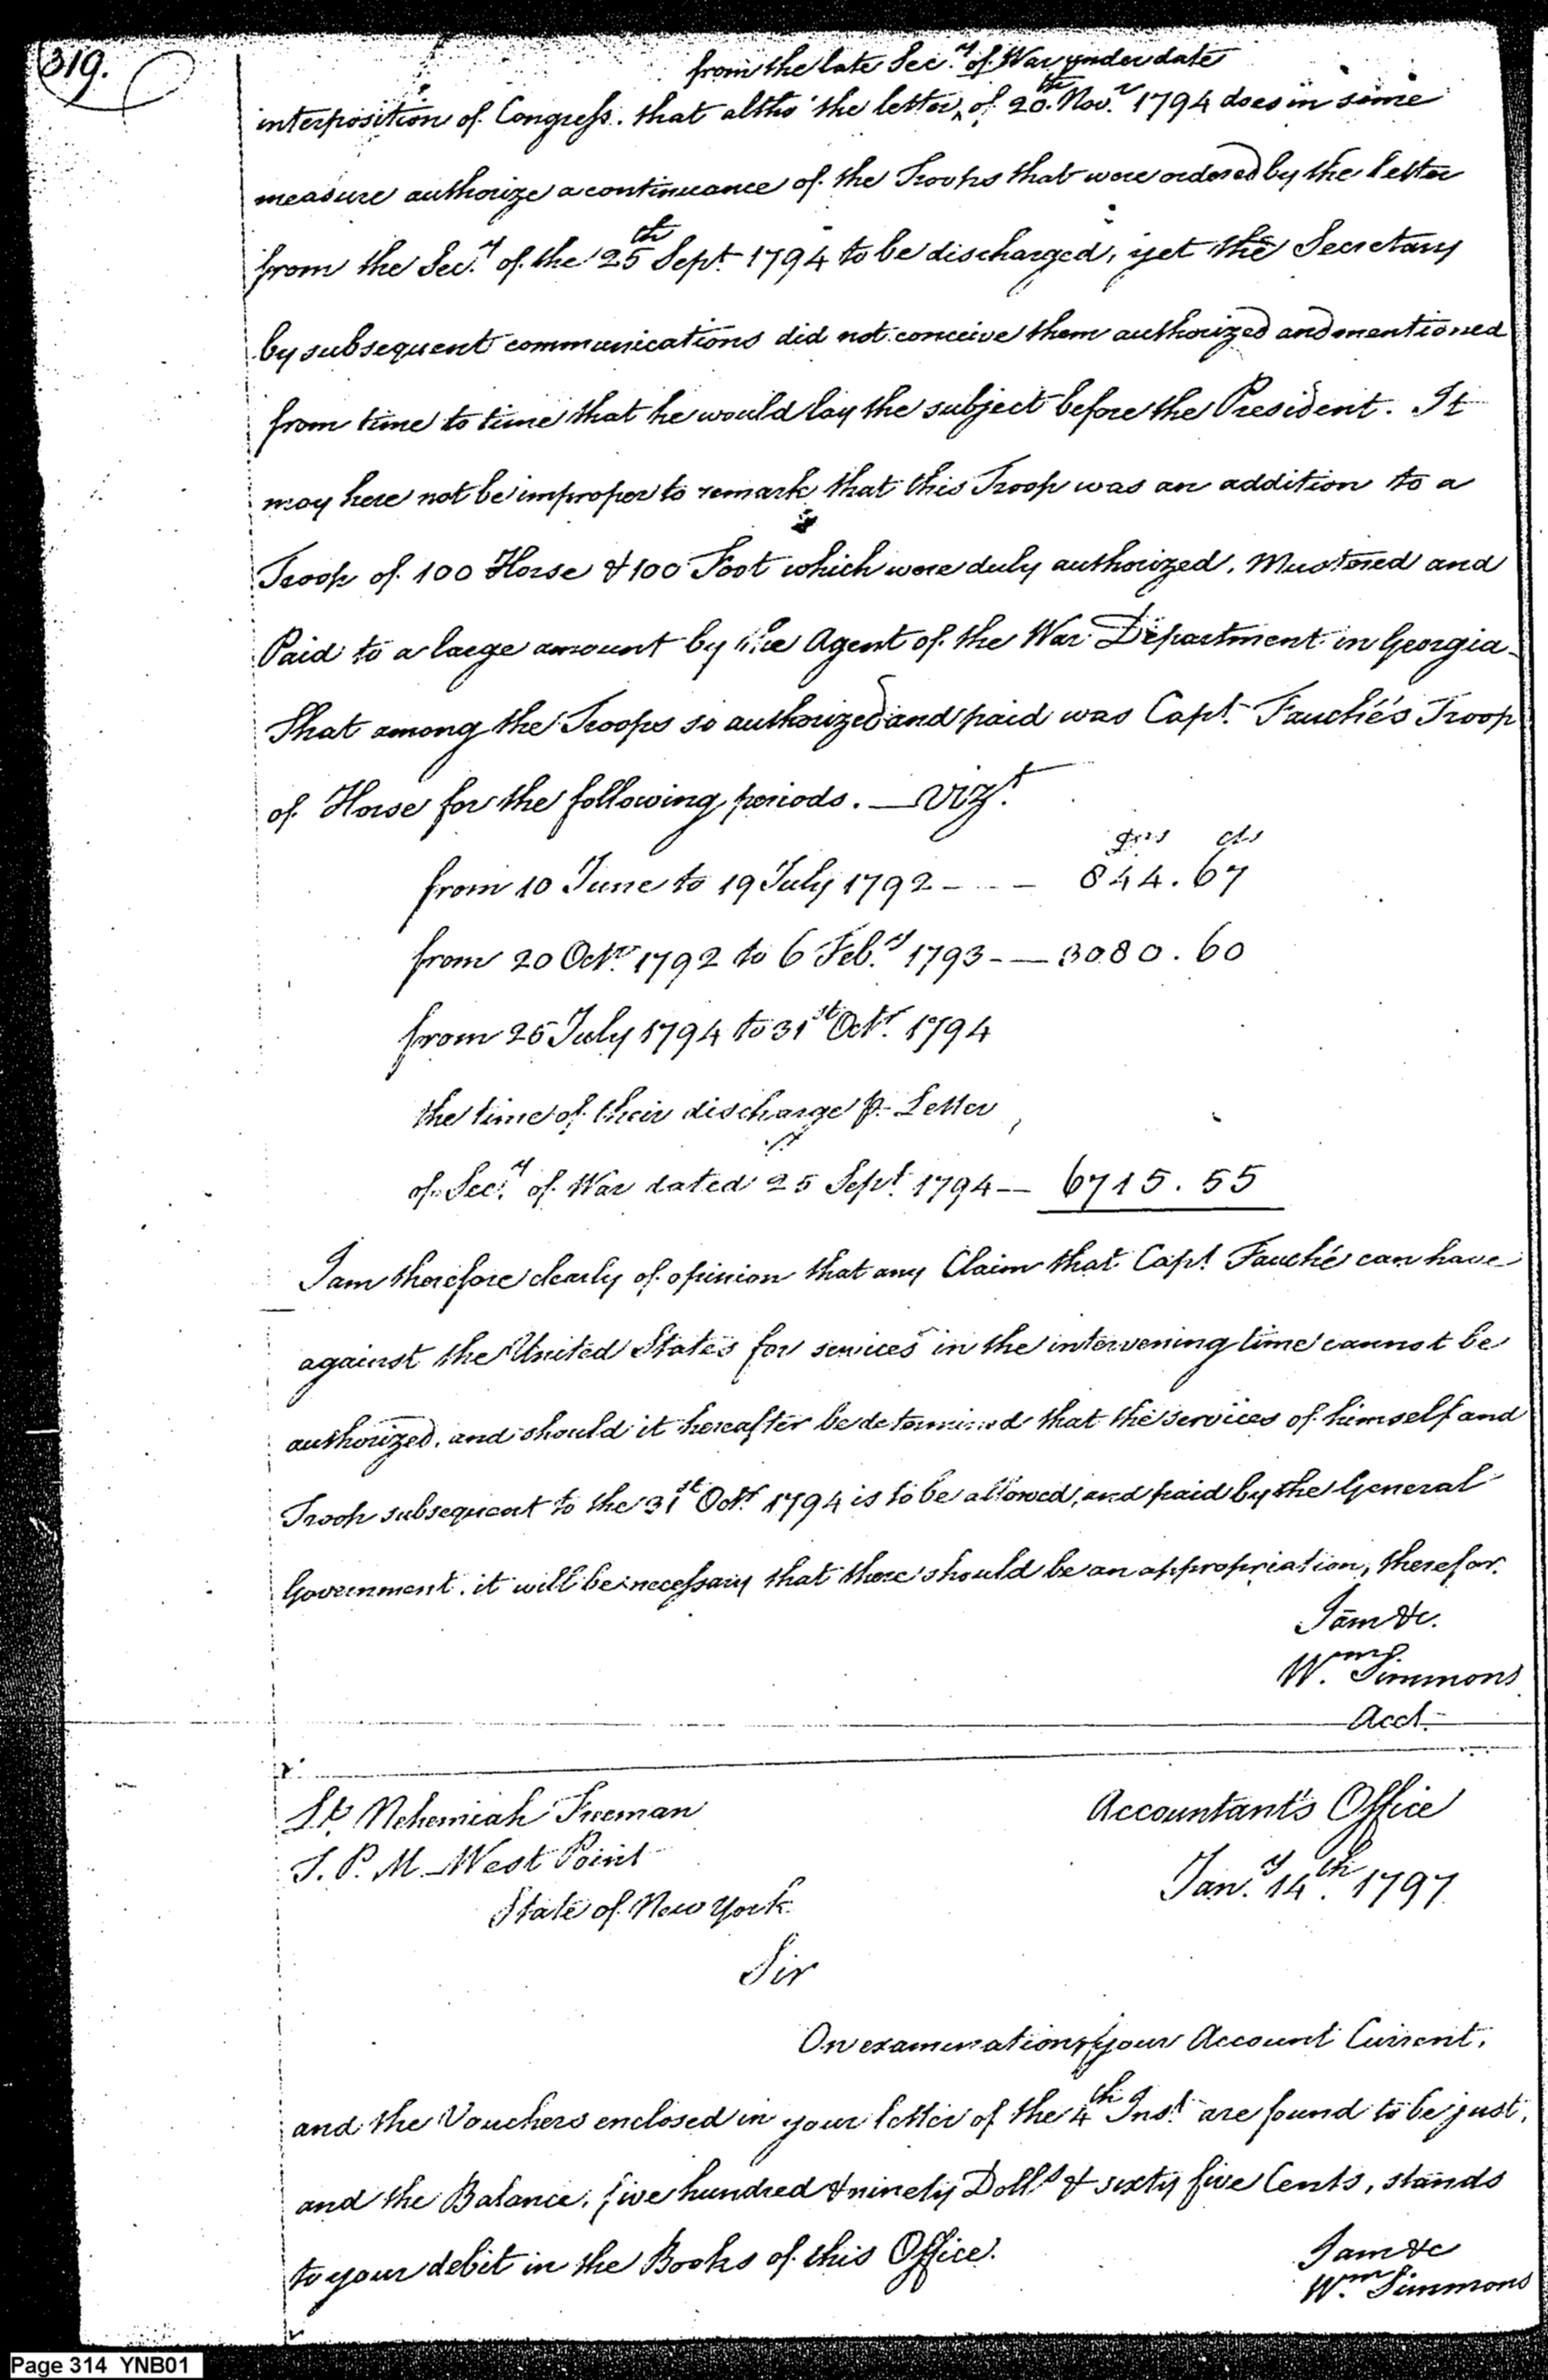 319.
from the late Sec.y of War under date
interposition of Congress. that altho' the letter ^ of 20.th Nov.r 1794 does in some
measure authorize a continuance of the Troops that were ordered by the letter
from the Sec.y of the 25th Sept 1794 to be discharged, yet the Secretary
by subsequent communications did not conceive them authorized and mentioned
from time to time that he would lay the subject before the President. It
may here not be improper to remark that this Troop was an addition to a
Troop of 100 Horse & 100 Foot which were duly authorized, Mustered and
Paid to a large amount by the Agent of the War Department in Georgia –
That among the Troops so authorized and paid was Capt. Fauché's Troop
of Horse for the following periods. — Vizt.
cts
from 10 June to 19 July 1792 - - - - 844.67
from 20 Octr. 1792 to 6 Feb.y 1793 - — 3080.60
from 25 July 1794 to 31st Octr. 1794
the time of their discharge p. Letter
of Sec.y of War dated 25 Sept. 1794 — 6715.55
I am therefore clearly of opinion that any Claim that Capt. Fauché can have
against the United States for services in the intervening time cannot be
authorized. and should it hereafter be determined that the services of himself and
Troop subsequent to the 31st Octr. 1794 is to be allowed, and paid by the General
Government. it will be necessary that there should be an appropriation, therefor.
I am &c.
Wm. Simmons
Acct.
Lt. Nehemiah Freeman
Accountant's Office
T. P. M. West Point
Jan.y 14th. 1797
State of New York
Sir
On examination of your Account Current,
and the Vouchers enclosed in your letter of the 4th Inst. are found to be just,
and the Balance, five hundred & ninety Dolls & sixty five Cents, stands
to your debit in the Books of this Office.
I am &c
Wm. Simmons
Page 314 YNB01